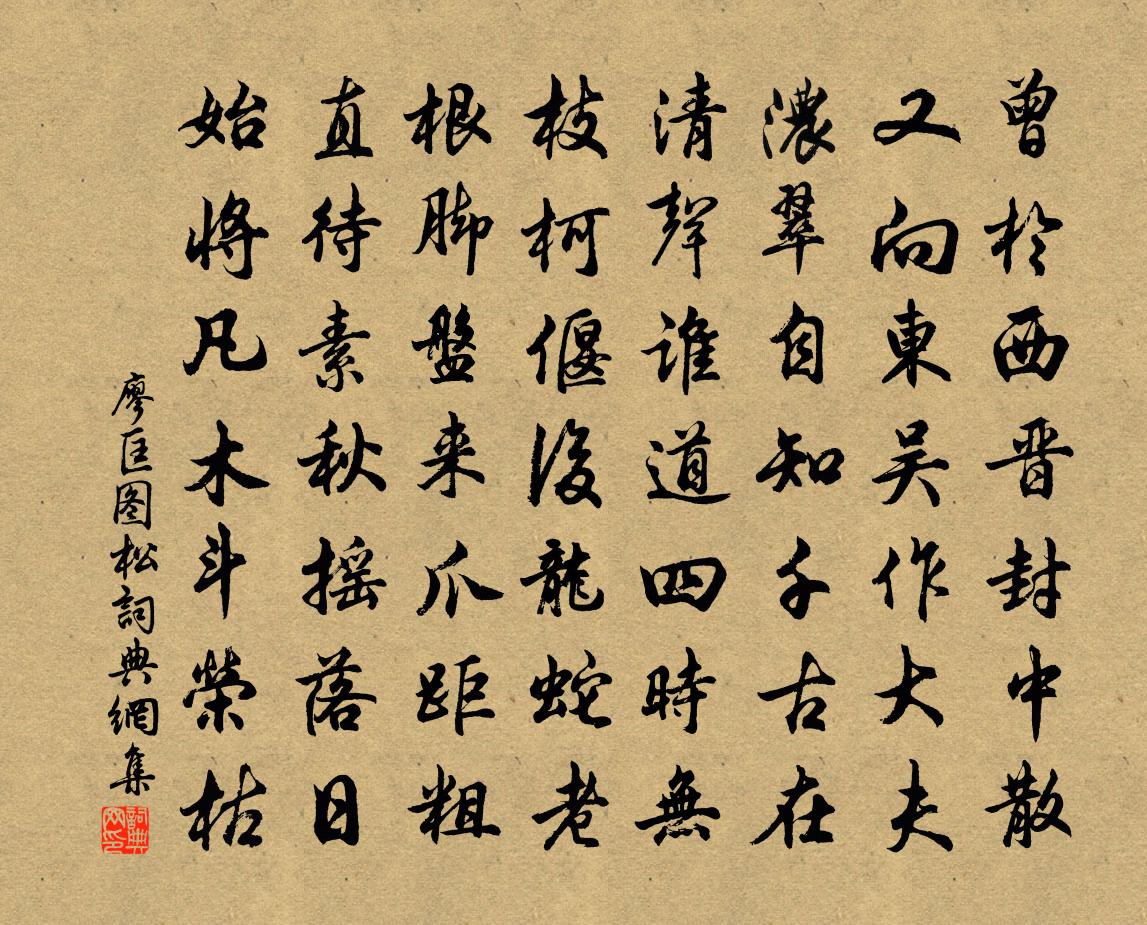 曾於西晋封中散
又向東吴作大夫
濃翠自知千古在
清聲誰道四時無
枝柯偃後龍蛇老
根脚盤来爪距粗
直待素秋摇落日
始將凡木斗榮枯
廖匡图松詞典網集
詞典网印